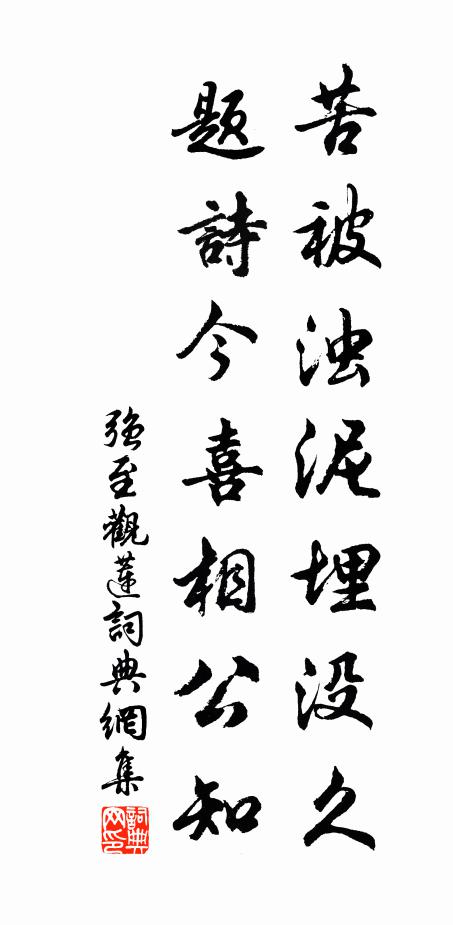 苦被浊泥埋没久
題詩今喜相公知
強至觀蓮詞典網集
詞典网印